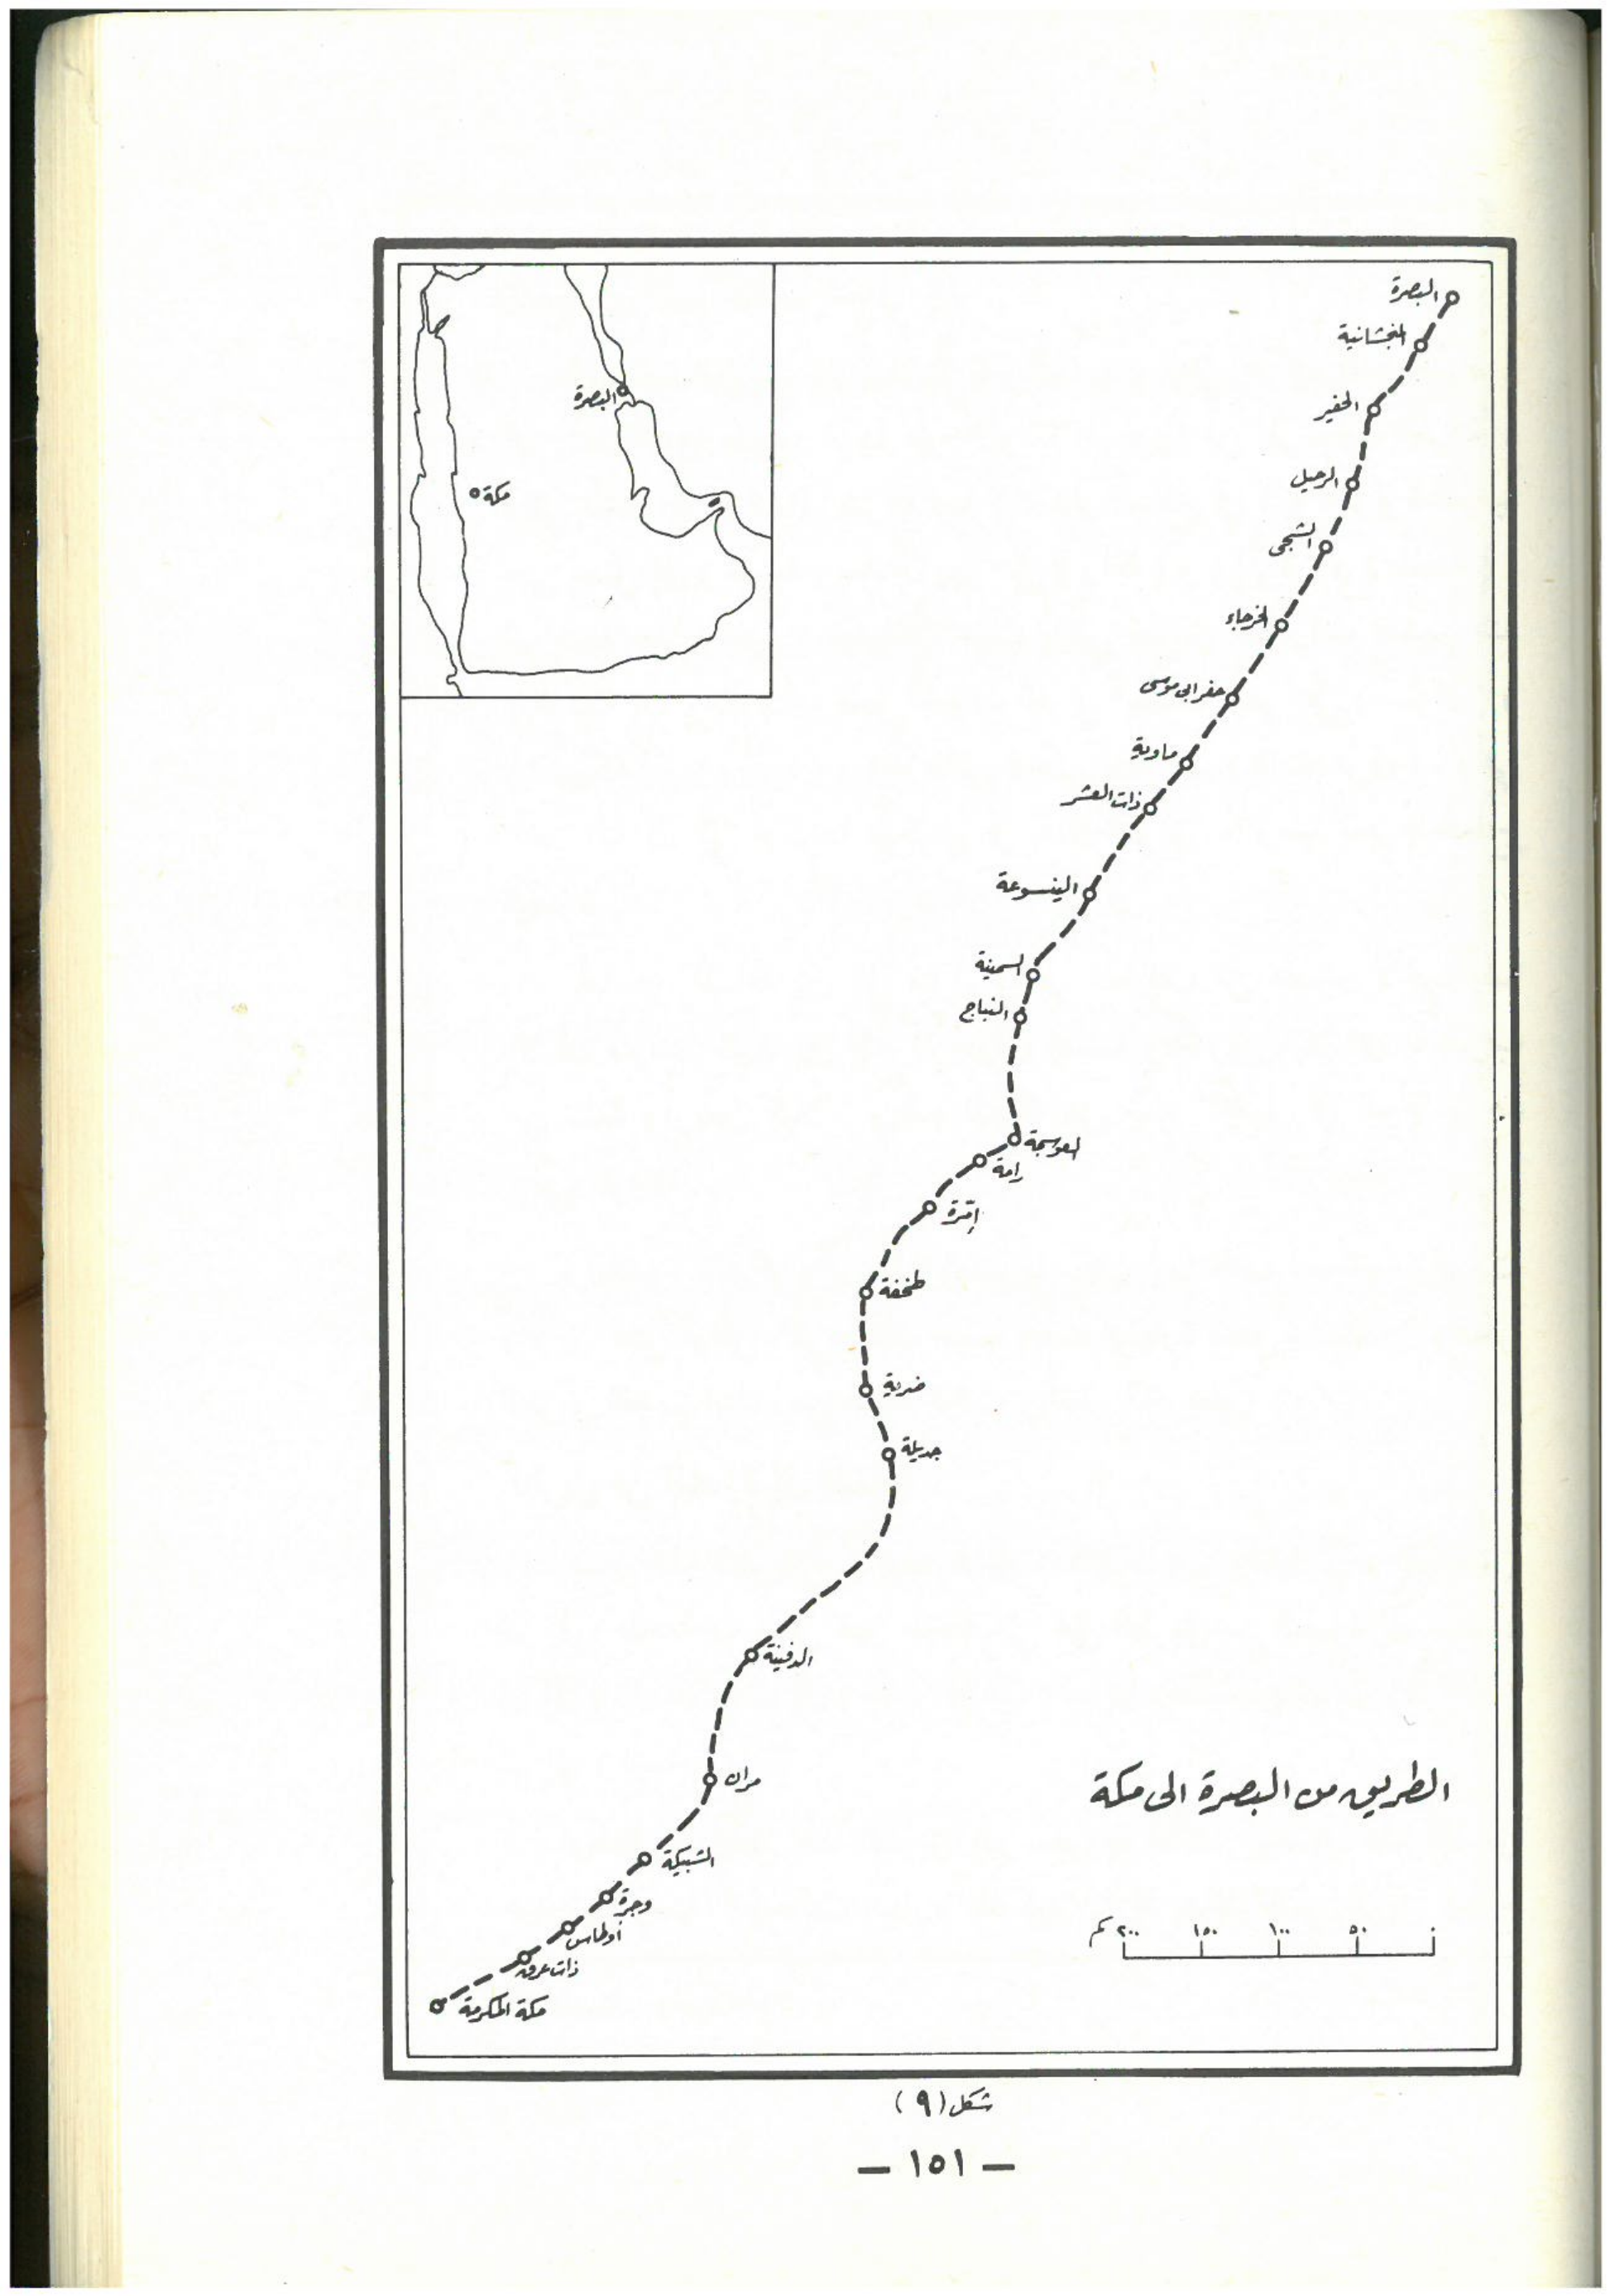 البصرة
المنجشانية
الحفير
الرحيل
الشجي
الخرجاء
حفر ابي موسى
ماوية
ذات العشر
الينسوعة
السمينة
النباج
العوسجة
رامة
إمّرة
طخفة
ضرية
جديلة
الدفينة
مران
الشبيكة
وجرة
أوطاس
ذات عرق
مكة المكرمة
البصرة
مكة
الطريق من البصرة الى مكة
٠ ٥٠ ١٠٠ ١٥٠ ٢٠٠ كم
شكل (٩)
— ١٥١ —